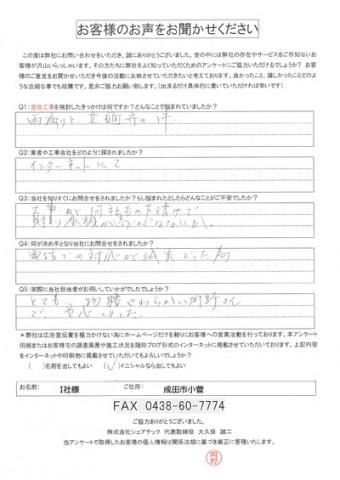 お客様のお声をお聞かせください
この度は弊社にお問い合わせをいただき、誠にありがとうございました。世の中には弊社の存在やサービスをご存知ないお
客様が沢山いらっしゃいます。その方たちに弊社をよく知っていただくためのアンケートにご協力いただけるでしょうか？お客
様のご意見をお聞かせいただき今後の活動に反映させていただきたいと考えております。良かったこと、嬉しかったことどのよ
うな些細な事でも結構です。是非ご協力お願い致します。（出来るだけ具体的に書いていただければ幸いです）
Q1：屋根工事を検討したきっかけは何ですか？どんなことで悩まれていましたか？
雨漏りと、
Q2：業者や工事会社をどのように探されましたか？
インターネットにて
Q3：当社を知りすぐにお問合せをされましたか？もし悩まれたとしたらどんなことがご不安でしたか？
Q4：何が決め手となり当社にお問合せをされましたか？
電話での対応が誠実だった為
Q5：実際に当社担当者がお伺いしていかがでしたでしょうか？
とても、物腰やわらかい岡野さん
で、安心しました。
＊弊社は広告宣伝費を極力かけない為にホームページだけを頼りにお客様への営業活動を行っております。本アンケート
用紙またはお客様宅の調査風景や施工状況を随時ブログ形式のインターネットに掲載させていただいております。上記内容
をインターネットや印刷物に掲載させていただいてもよろしいでしょうか？
（　）名前を出してもよい　（✓）イニシャルなら出してもよい
お名前： I社様 ご住所： 成田市小菅
FAX 0438-60-7774
ご協力ありがとうございました。
株式会社シェアテック 代表取締役 大久保 誠二
当アンケートで取得したお客様の個人情報は関係法規に基づき厳正に管理いたします。
岡野